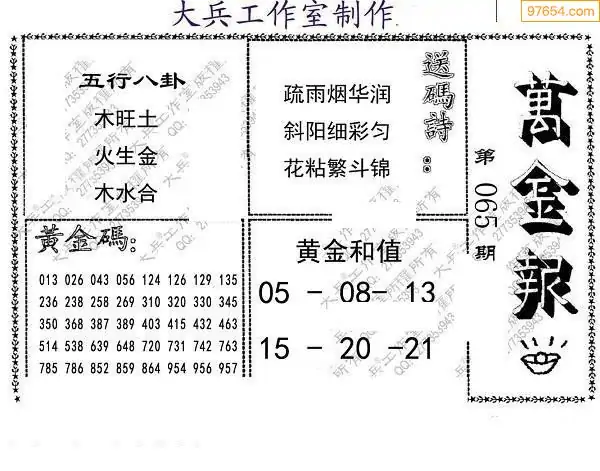 大兵工作室制作
97654.com
五行八卦
木旺土
火生金
木水合
送碼詩：
疏雨烟华润
斜阳细彩匀
花粘繁斗锦
萬金报
第065期
黃金碼：
013 026 043 056 124 126 129 135
236 238 258 269 310 320 330 345
350 368 387 389 403 415 432 463
514 538 639 648 720 731 742 763
785 786 852 859 864 954 956 957
黄金和值
05 - 08- 13
15 - 20 -21